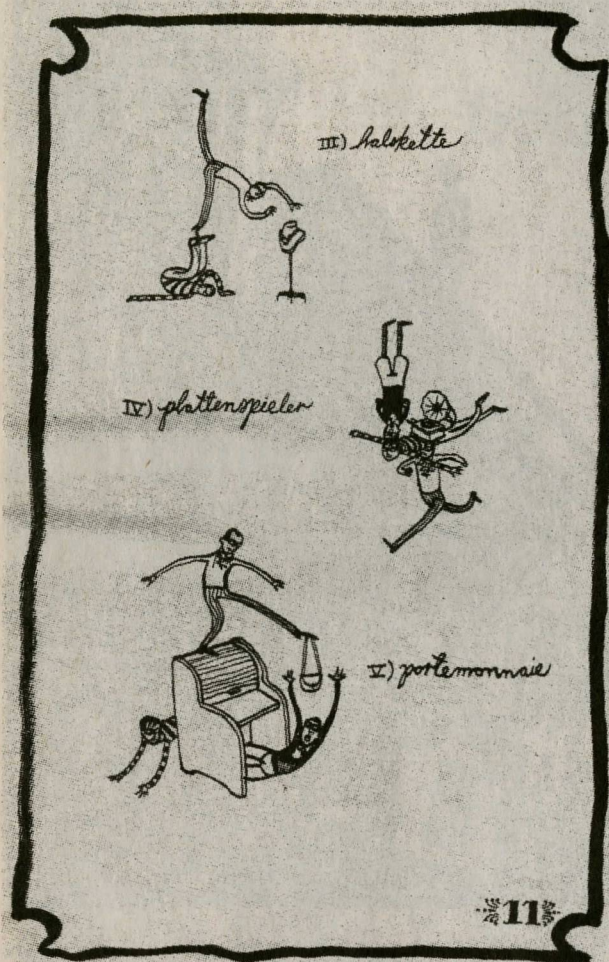 III) halskette
IV) plattenspieler
V) portemonnaie
11